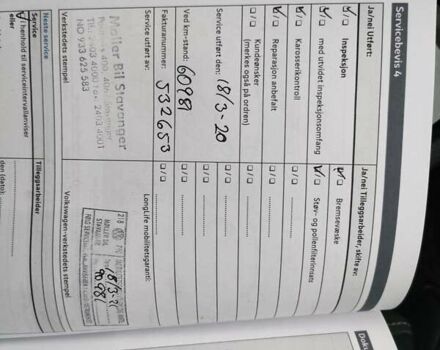 Servicebevis 4
Ja/nei Utført:
Inspeksjon
med utvidet inspeksjonsomfang
Karosserikontroll
Reparasjon anbefalt
Kundeønsker
(merkes også på ordren)
Service utført den: 18/3-20
Ved km-stand: 60981
Fakturanummer: 532653
Service utført av:
Møller Bil Stavanger
NO 933 625 583
Verkstedets stempel
Neste service
Service
i henhold til serviceintervallanviser
eller
Ja/nei Tilleggsarbeider, skiftes av:
Bremsevæske
Støv- og pollenfilterinnsats
LongLife mobilitetsgaranti:
18/3-2
60981
Volkswagen-verkstedets stempel
Tilleggsarbeider
den (dato)
Dok